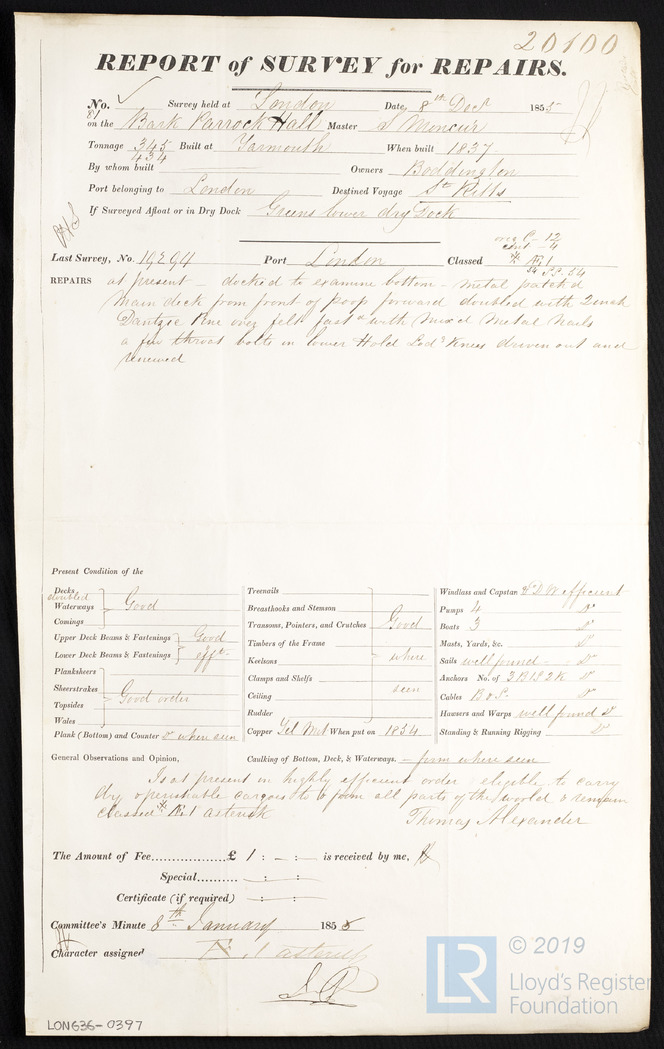 20100
REPORT of SURVEY for REPAIRS.
No. 81 Survey held at London Date, 8th Decr 1855
on the Bark Parrock Hall Master S Moncur
Tonnage 345 434 Built at Yarmouth When built 1837
By whom built Owners Boddington
Port belonging to London Destined Voyage St Kitts
If Surveyed Afloat or in Dry Dock Greens lower dry Dock
Last Survey, No. 19294 Port London Classed Æ1
REPAIRS at present - docked to examine bottom - metal patched
Main deck from front of poop forward doubled with 2 inch
Dantzic Pine over felt fastd with Mixd Metal Nails
a few throat bolts in lower Hold Lodg Knees driven out and
renewed
Present Condition of the
Decks doubled
Waterways Good
Comings
Upper Deck Beams & Fastenings Good
Lower Deck Beams & Fastenings efft
Planksheers
Sheerstrakes
Topsides Good order
Wales
Plank (Bottom) and Counter Do where seen
Treenails
Breasthooks and Stemson
Transoms, Pointers, and Crutches Good
Timbers of the Frame
Keelsons where
Clamps and Shelfs
Ceiling seen
Rudder
Copper Yel Met When put on 1854
Windlass and Capstan efficient
Pumps 4 Do
Boats 3 Do
Masts, Yards, &c. Do
Sails well found - Do
Anchors No. of 3B 1S 2K Do
Cables Do
Hawsers and Warps well found Do
Standing & Running Rigging Do
General Observations and Opinion, Caulking of Bottom, Deck, & Waterways. - firm where seen
Is at present in highly efficient order eligible to carry
dry & perishable cargoes to & from all parts of the world & remain
classed Æ1 asterisk Thomas Alexander
The Amount of Fee £ 1 : - : - is received by me,
Special - : - : -
Certificate (if required) - : - : -
Committee's Minute 8th January 1855
Character assigned Æ 1 asterisk
LON636-0397
LR
© 2019
Lloyd's Register
Foundation